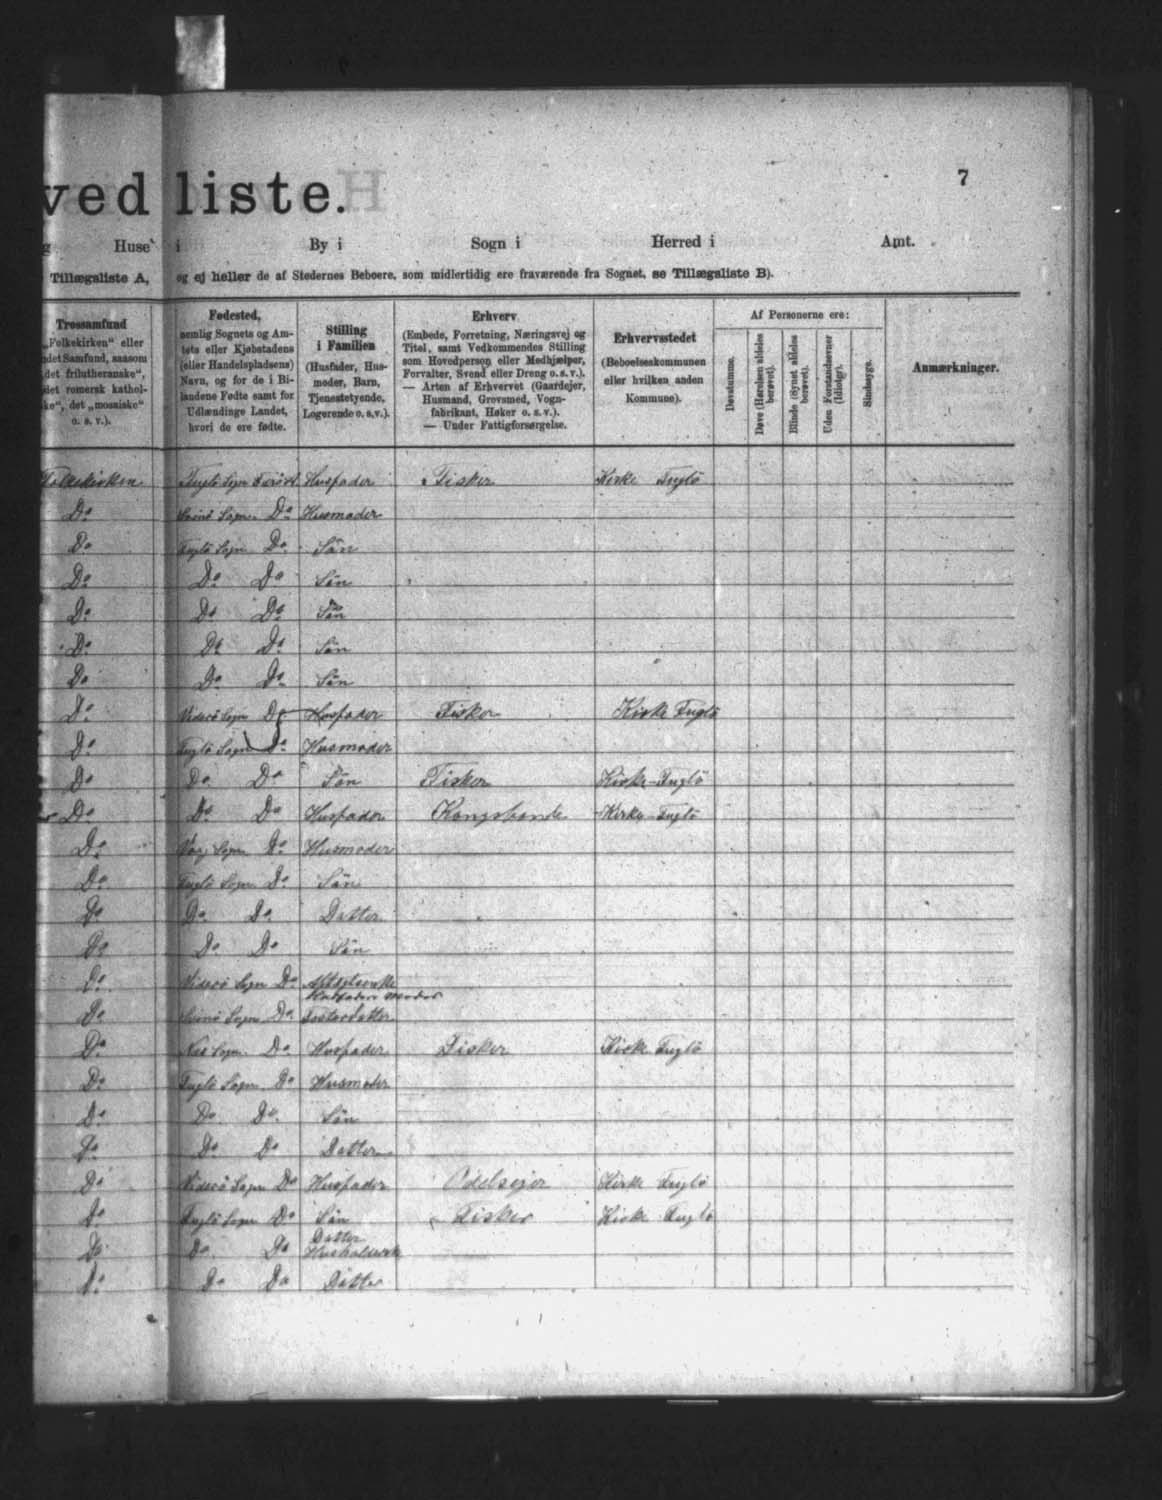 ved liste.
7
g Huse i By i Sogn i Herred i Amt.
Tillægsliste A, og ej heller de af Stedernes Beboere, som midlertidig ere fraværende fra Sognet, se Tillægsliste B).
Trossamfund
„Folkekirken“ eller
det Samfund, saasom
det frilutheranske“,
det romersk kathol-
ke“, det „mosaiske“
o. s. v.).
Fødested,
nemlig Sognets og Am-
tets eller Kjøbstadens
(eller Handelspladsens)
Navn, og for de i Bi-
landene Fødte samt for
Udlændinge Landet,
hvori de ere fødte.
Stilling
i Familien
(Husfader, Hus-
moder, Barn,
Tjenestetyende,
Logerende o. s. v.).
Erhverv
(Embede, Forretning, Næringsvej og
Titel, samt Vedkommendes Stilling
som Hovedperson eller Medhjælper,
Forvalter, Svend eller Dreng o. s. v.).
— Arten af Erhvervet (Gaardejer,
Husmand, Grovsmed, Vogn-
fabrikant, Høker o. s. v.).
— Under Fattigforsørgelse.
Erhvervsstedet
(Beboelseskommunen
eller hvilken anden
Kommune).
Af Personerne ere:
Døvstumme.
Døve (Hørelsen aldeles
berøvet).
Blinde (Synet aldeles
berøvet).
Uden Forstandsevner
(Idioter).
Sindssyge.
Anmærkninger.
Folkekirken Fuglö Sogn Husfader Fisker Kirke Fuglö
Do Svinö Sogn Do Husmoder
Do Fuglö Sogn Do Sön
Do Do Do Sön
Do Do Do Sön
Do Do Do Sön
Do Do Do Sön
Do Viderö Sogn Do Husfader Fisker Kirke Fuglö
Do Fuglö Sogn Do Husmoder
Do Do Do Sön Fisker Kirke-Fuglö
Do Do Do Husfader Kongsbonde Kirke-Fuglö
Do Sogn Do Husmoder
Do Fuglö Sogn Do Sön
Do Do Do Datter
Do Do Do Sön
Do Viderö Sogn Do
Husfaders moder
Do Svinö Sogn Do Fosterdatter
Do Nes Sogn Do Husfader Fisker Kirke Fuglö
Do Fuglö Sogn Do Husmoder
Do Do Do Sön
Do Do Do Datter
Do Viderö Sogn Do Husfader Odelsejer Kirke Fuglö
Do Fuglö Sogn Do Sön Fisker Kirke Fuglö
Datter
Do Do Do
Do Do Do Datter